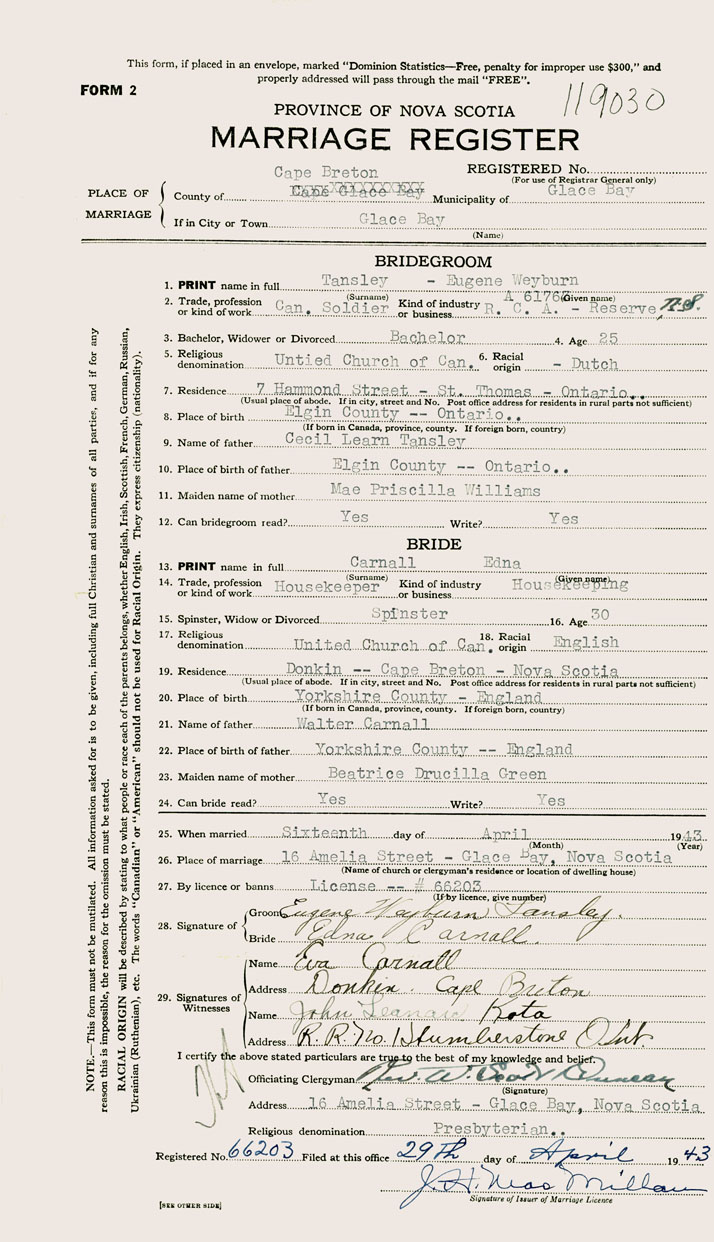 This form, if placed in an envelope, marked "Dominion Statistics—Free, penalty for improper use $300," and
properly addressed will pass through the mail "FREE".
FORM 2
119030
PROVINCE OF NOVA SCOTIA
MARRIAGE REGISTER
REGISTERED No.
(For use of Registrar General only)
PLACE OF MARRIAGE
Cape Breton
County of Cape Glace Bay Municipality of Glace Bay
If in City or Town Glace Bay
(Name)
BRIDEGROOM
1. PRINT name in full Tansley - Eugene Weyburn
(Surname) (Given name)
A 61763
2. Trade, profession or kind of work Can. Soldier Kind of industry or business R. C. A. - Reserve, N.S.
3. Bachelor, Widower or Divorced Bachelor 4. Age 25
5. Religious denomination Untied Church of Can. 6. Racial origin - Dutch
7. Residence 7 Hammond Street - St. Thomas - Ontario..
(Usual place of abode. If in city, street and No. Post office address for residents in rural parts not sufficient)
8. Place of birth Elgin County -- Ontario..
(If born in Canada, province, county. If foreign born, country)
9. Name of father Cecil Learn Tansley
10. Place of birth of father Elgin County -- Ontario..
11. Maiden name of mother Mae Priscilla Williams
12. Can bridegroom read? Yes Write? Yes
BRIDE
13. PRINT name in full Carnall Edna
(Surname) (Given name)
14. Trade, profession or kind of work Housekeeper Kind of industry or business Housekeeping
15. Spinster, Widow or Divorced Spinster 16. Age 30
17. Religious denomination United Church of Can. 18. Racial origin English
19. Residence Donkin -- Cape Breton - Nova Scotia
(Usual place of abode. If in city, street and No. Post office address for residents in rural parts not sufficient)
20. Place of birth Yorkshire County - England
(If born in Canada, province, county. If foreign born, country)
21. Name of father Walter Carnall
22. Place of birth of father Yorkshire County -- England
23. Maiden name of mother Beatrice Drucilla Green
24. Can bride read? Yes Write? Yes
25. When married Sixteenth day of April 1943
(Month) (Year)
26. Place of marriage 16 Amelia Street - Glace Bay, Nova Scotia
(Name of church or clergyman's residence or location of dwelling house)
27. By licence or banns License -- # 66203
(If by licence, give number)
28. Signature of
Groom Eugene Weyburn Tansley.
Bride Edna Carnall.
29. Signatures of Witnesses
Name Eva Carnall
Address Donkin. Cape Breton
Name John Leanard Kota
Address R.R. No. 1 Humberstone Ont
I certify the above stated particulars are true to the best of my knowledge and belief.
Officiating Clergyman Rev W. Scott Duncan
(Signature)
Address 16 Amelia Street - Glace Bay, Nova Scotia
Religious denomination Presbyterian..
Registered No. 66203 Filed at this office 29th day of April 1943
J. H. MacMillan
Signature of Issuer of Marriage Licence
[SEE OTHER SIDE]
NOTE.—This form must not be mutilated. All information asked for is to be given, including full Christian and surnames of all parties, and if for any
reason this is impossible, the reason for the omission must be stated.
RACIAL ORIGIN will be described by stating to what people or race each of the parents belongs, whether English, Irish, Scottish, French, German, Russian,
Ukrainian (Ruthenian), etc. The words "Canadian" or "American" should not be used for Racial Origin. They express citizenship (nationality).